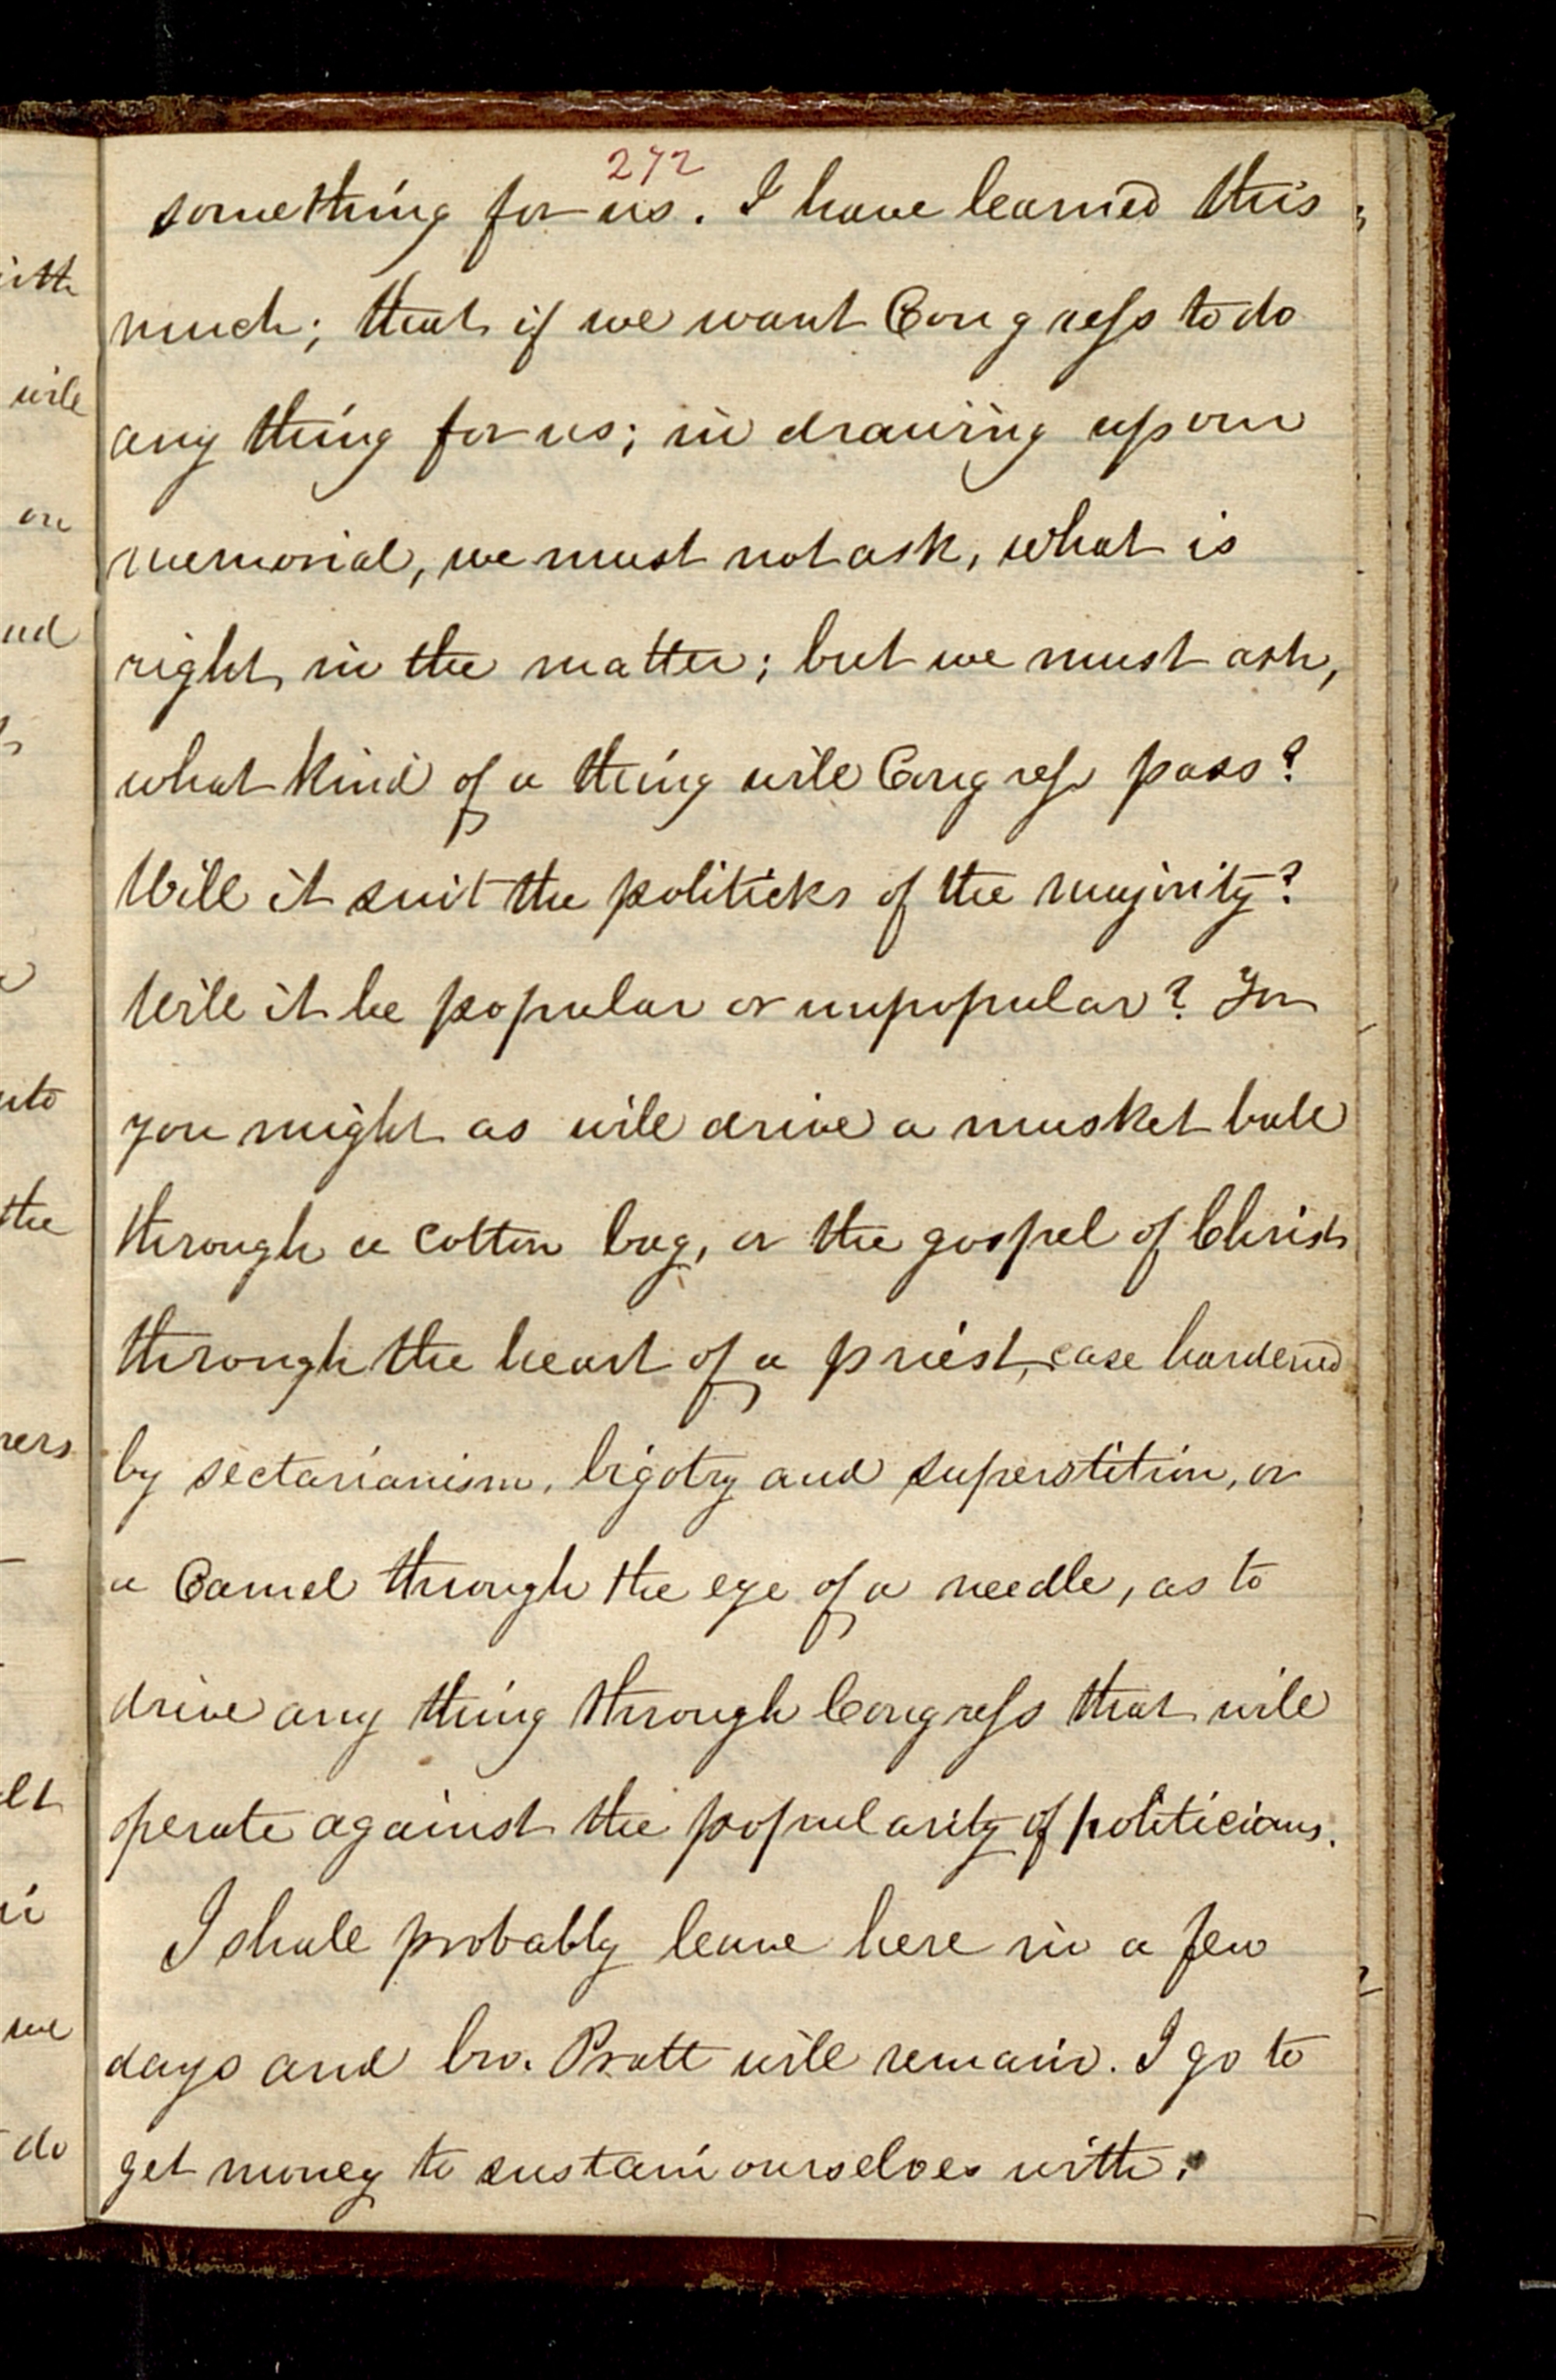 272
something for us. I have learned this
much; that if we want Congress to do
any thing for us; in drawing up our
memorial, we must not ask, what is
right in the matter; but we must ask,
what kind of a thing will Congress pass?
Will it suit the politicks of the majority?
Will it be popular or unpopular? For
you might as well drive a musket ball
through a cotton bag, or the gospel of Christ
through the heart of a priest, case hardened
by sectarianism, bigotry and superstition, or
a Camel through the eye of a needle, as to
drive any thing through Congress that will
operate against the popularity of politicians.
I shall probably leave here in a few
days and bro. Pratt will remain. I go to
get money to sustain ourselves with.